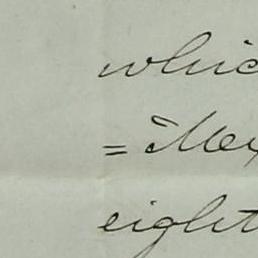 whic
= "Mex
eight